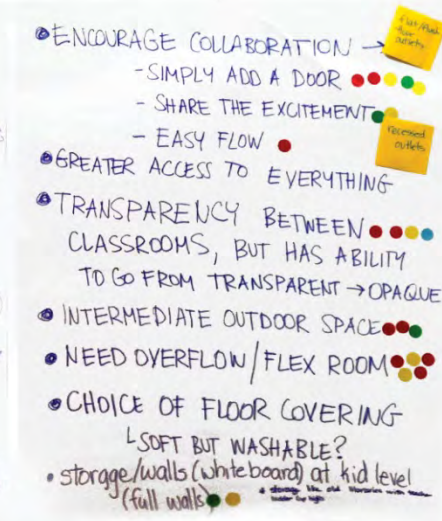 • ENCOURAGE COLLABORATION →
flat/flush
floor
outlets
- SIMPLY ADD A DOOR
- SHARE THE EXCITEMENT
- EASY FLOW
recessed
outlets
• GREATER ACCESS TO EVERYTHING
• TRANSPARENCY BETWEEN
CLASSROOMS, BUT HAS ABILITY
TO GO FROM TRANSPARENT → OPAQUE
• INTERMEDIATE OUTDOOR SPACE
• NEED OVERFLOW/FLEX ROOM
• CHOICE OF FLOOR COVERING
SOFT BUT WASHABLE?
• storage/walls (whiteboard) at kid level
(full walls)
storage like old libraries with
ladder for high